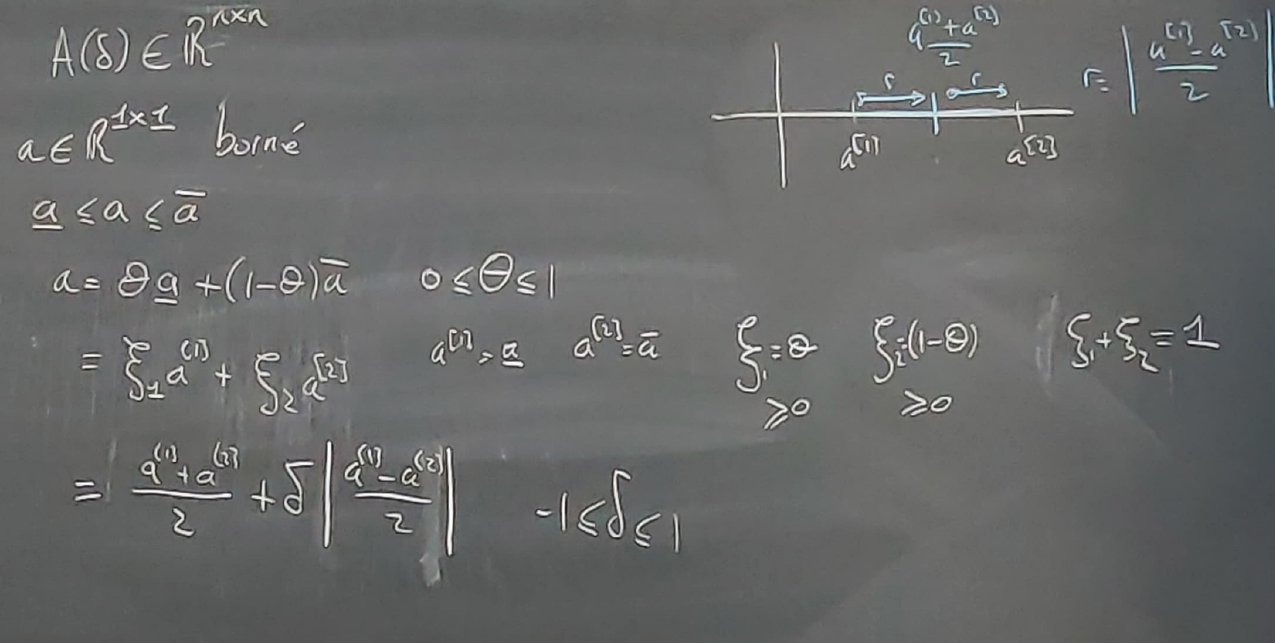 A(δ) ∈ ℝ^{n×n}
a ∈ ℝ^{1×1} borné
a̲ ≤ a ≤ a̅
a = θa̲ + (1-θ)a̅ 0 ≤ θ ≤ 1
= ξ₁a^{[1]} + ξ₂a^{[2]} a^{[1]} = a̲ a^{[2]} = a̅ ξ₁ = θ ξ₂ = (1-θ) ξ₁ + ξ₂ = 1
≥0 ≥0
= \frac{a^{[1]} + a^{[2]}}{2} + δ |\frac{a^{[1]} - a^{[2]}}{2}| -1 ≤ δ ≤ 1
\frac{a^{[1]} + a^{[2]}}{2}
r r
a^{[1]} a^{[2]}
r = |\frac{a^{[1]} - a^{[2]}}{2}|